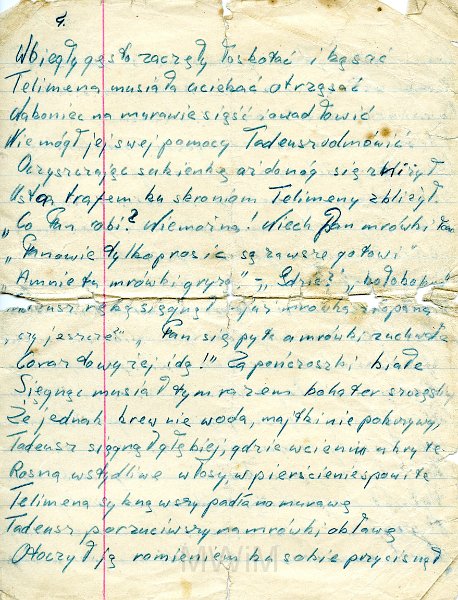 4.
Wbiegły gęsto zaczęły łoskotać i kąsać
Telimena musiała uciekać otrząsać
Nakoniec na murawie siąść i owad łowić
Nie mógł jej swej pomocy Tadeusz odmówić
Oczyszczając sukienkę aż do nóg się zniżył
Usta trafem ku skroniom Telimeny zbliżył.
„Co Pan robi? Niemożna! Niech Pan mrówki
„Panowie tylko prosić są zawsze gotowi"
„A mnie tu mrówki gryzą" – „Gdzież"
ręką sięgnął już mrówka
czy jeszcze" „Pan się pyta a mrówki zuchwałe
Coraz to wyżej idą!" Za pończoszki białe
Sięgnąć musiał tym razem bohater
Że jednak krew nie woda, majtki nie pokrzywy,
Tadeusz sięgnął głębiej, gdzie w cieniu ukryte
Rosną wstydliwe włosy w pierścienie spowite
Telimena syknąwszy padła na murawę
Tadeusz porzuciwszy na mrówki obławę
Otoczył ją ramieniem k. sobie przycisnął
MWM